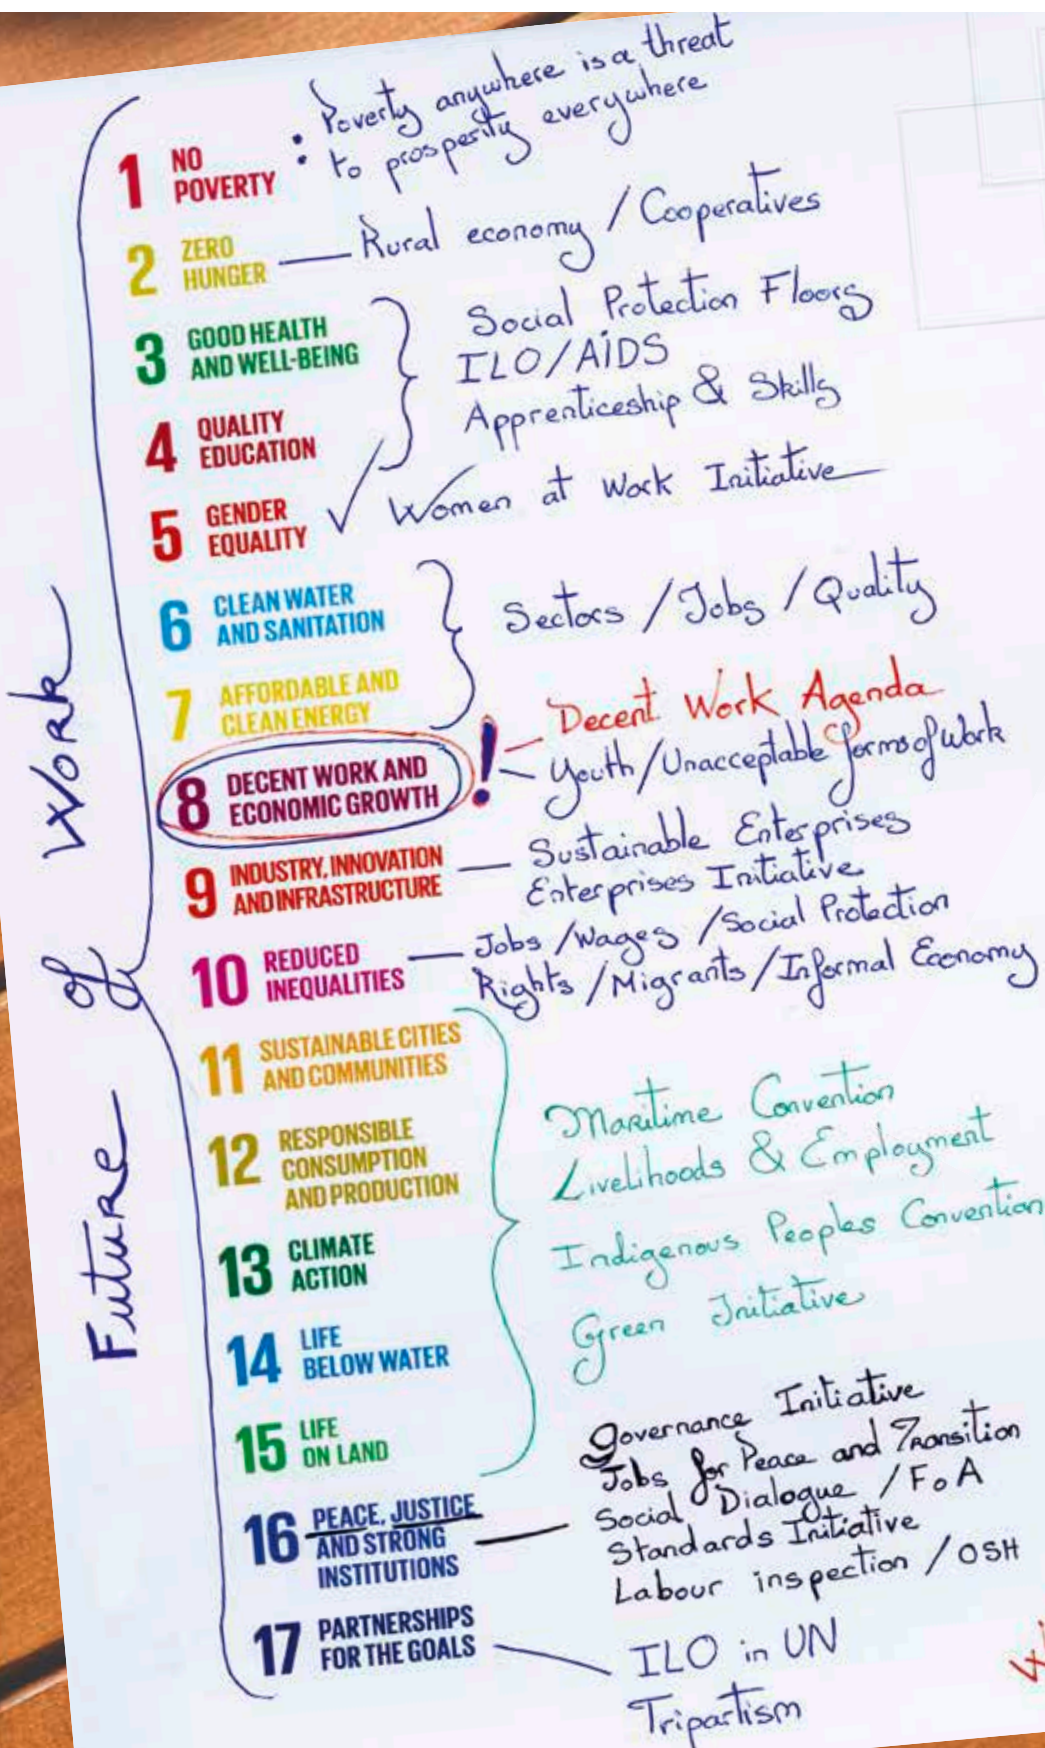 Future of Work
1 NO
POVERTY
: Poverty anywhere is a threat
to prosperity everywhere
2 ZERO
HUNGER
Rural economy / Cooperatives
3 GOOD HEALTH
AND WELL-BEING
4 QUALITY
EDUCATION
Social Protection Floors
ILO/AIDS
Apprenticeship & Skills
5 GENDER
EQUALITY
Women at Work Initiative
6 CLEAN WATER
AND SANITATION
7 AFFORDABLE AND
CLEAN ENERGY
Sectors / Jobs / Quality
8 DECENT WORK AND
ECONOMIC GROWTH
!
Decent Work Agenda
Youth/Unacceptable forms of Work
9 INDUSTRY, INNOVATION
AND INFRASTRUCTURE
Sustainable Enterprises
Enterprises Initiative
10 REDUCED
INEQUALITIES
Jobs / Wages / Social Protection
Rights / Migrants / Informal Economy
11 SUSTAINABLE CITIES
AND COMMUNITIES
12 RESPONSIBLE
CONSUMPTION
AND PRODUCTION
13 CLIMATE
ACTION
14 LIFE
BELOW WATER
15 LIFE
ON LAND
Maritime Convention
Livelihoods & Employment
Indigenous Peoples Convention
Green Initiative
16 PEACE, JUSTICE
AND STRONG
INSTITUTIONS
Governance Initiative
Jobs for Peace and Transition
Social Dialogue / FoA
Standards Initiative
Labour inspection / OSH
17 PARTNERSHIPS
FOR THE GOALS
ILO in UN
Tripartism